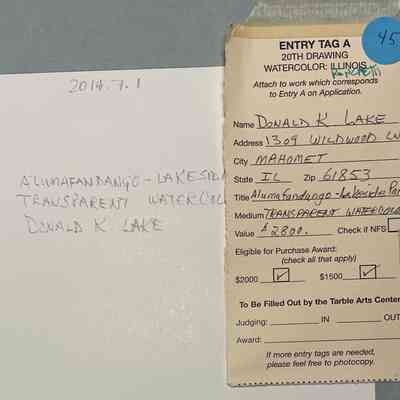 2014.7.1
ALUMAFANDANGO-LAKESIDE
TRANSPARENT WATERCOL
DONALD K LAKE
45
ENTRY TAG A
20TH DRAWING
WATERCOLOR: ILLINOIS
Attach to work which corresponds
to Entry A on Application.
Name DONALD K LAKE
Address 1309 WILDWOOD LN
City MAHOMET
State IL Zip 61853
Title Alumafandango-Lakeside Par
Medium TRANSPARENT WATERCOLO
Value $2800. Check if NFS
Eligible for Purchase Award:
(check all that apply)
$2000 ✓ $1500 ✓
To Be Filled Out by the Tarble Arts Center
Judging: IN OUT
Award:
If more entry tags are needed,
please feel free to photocopy.